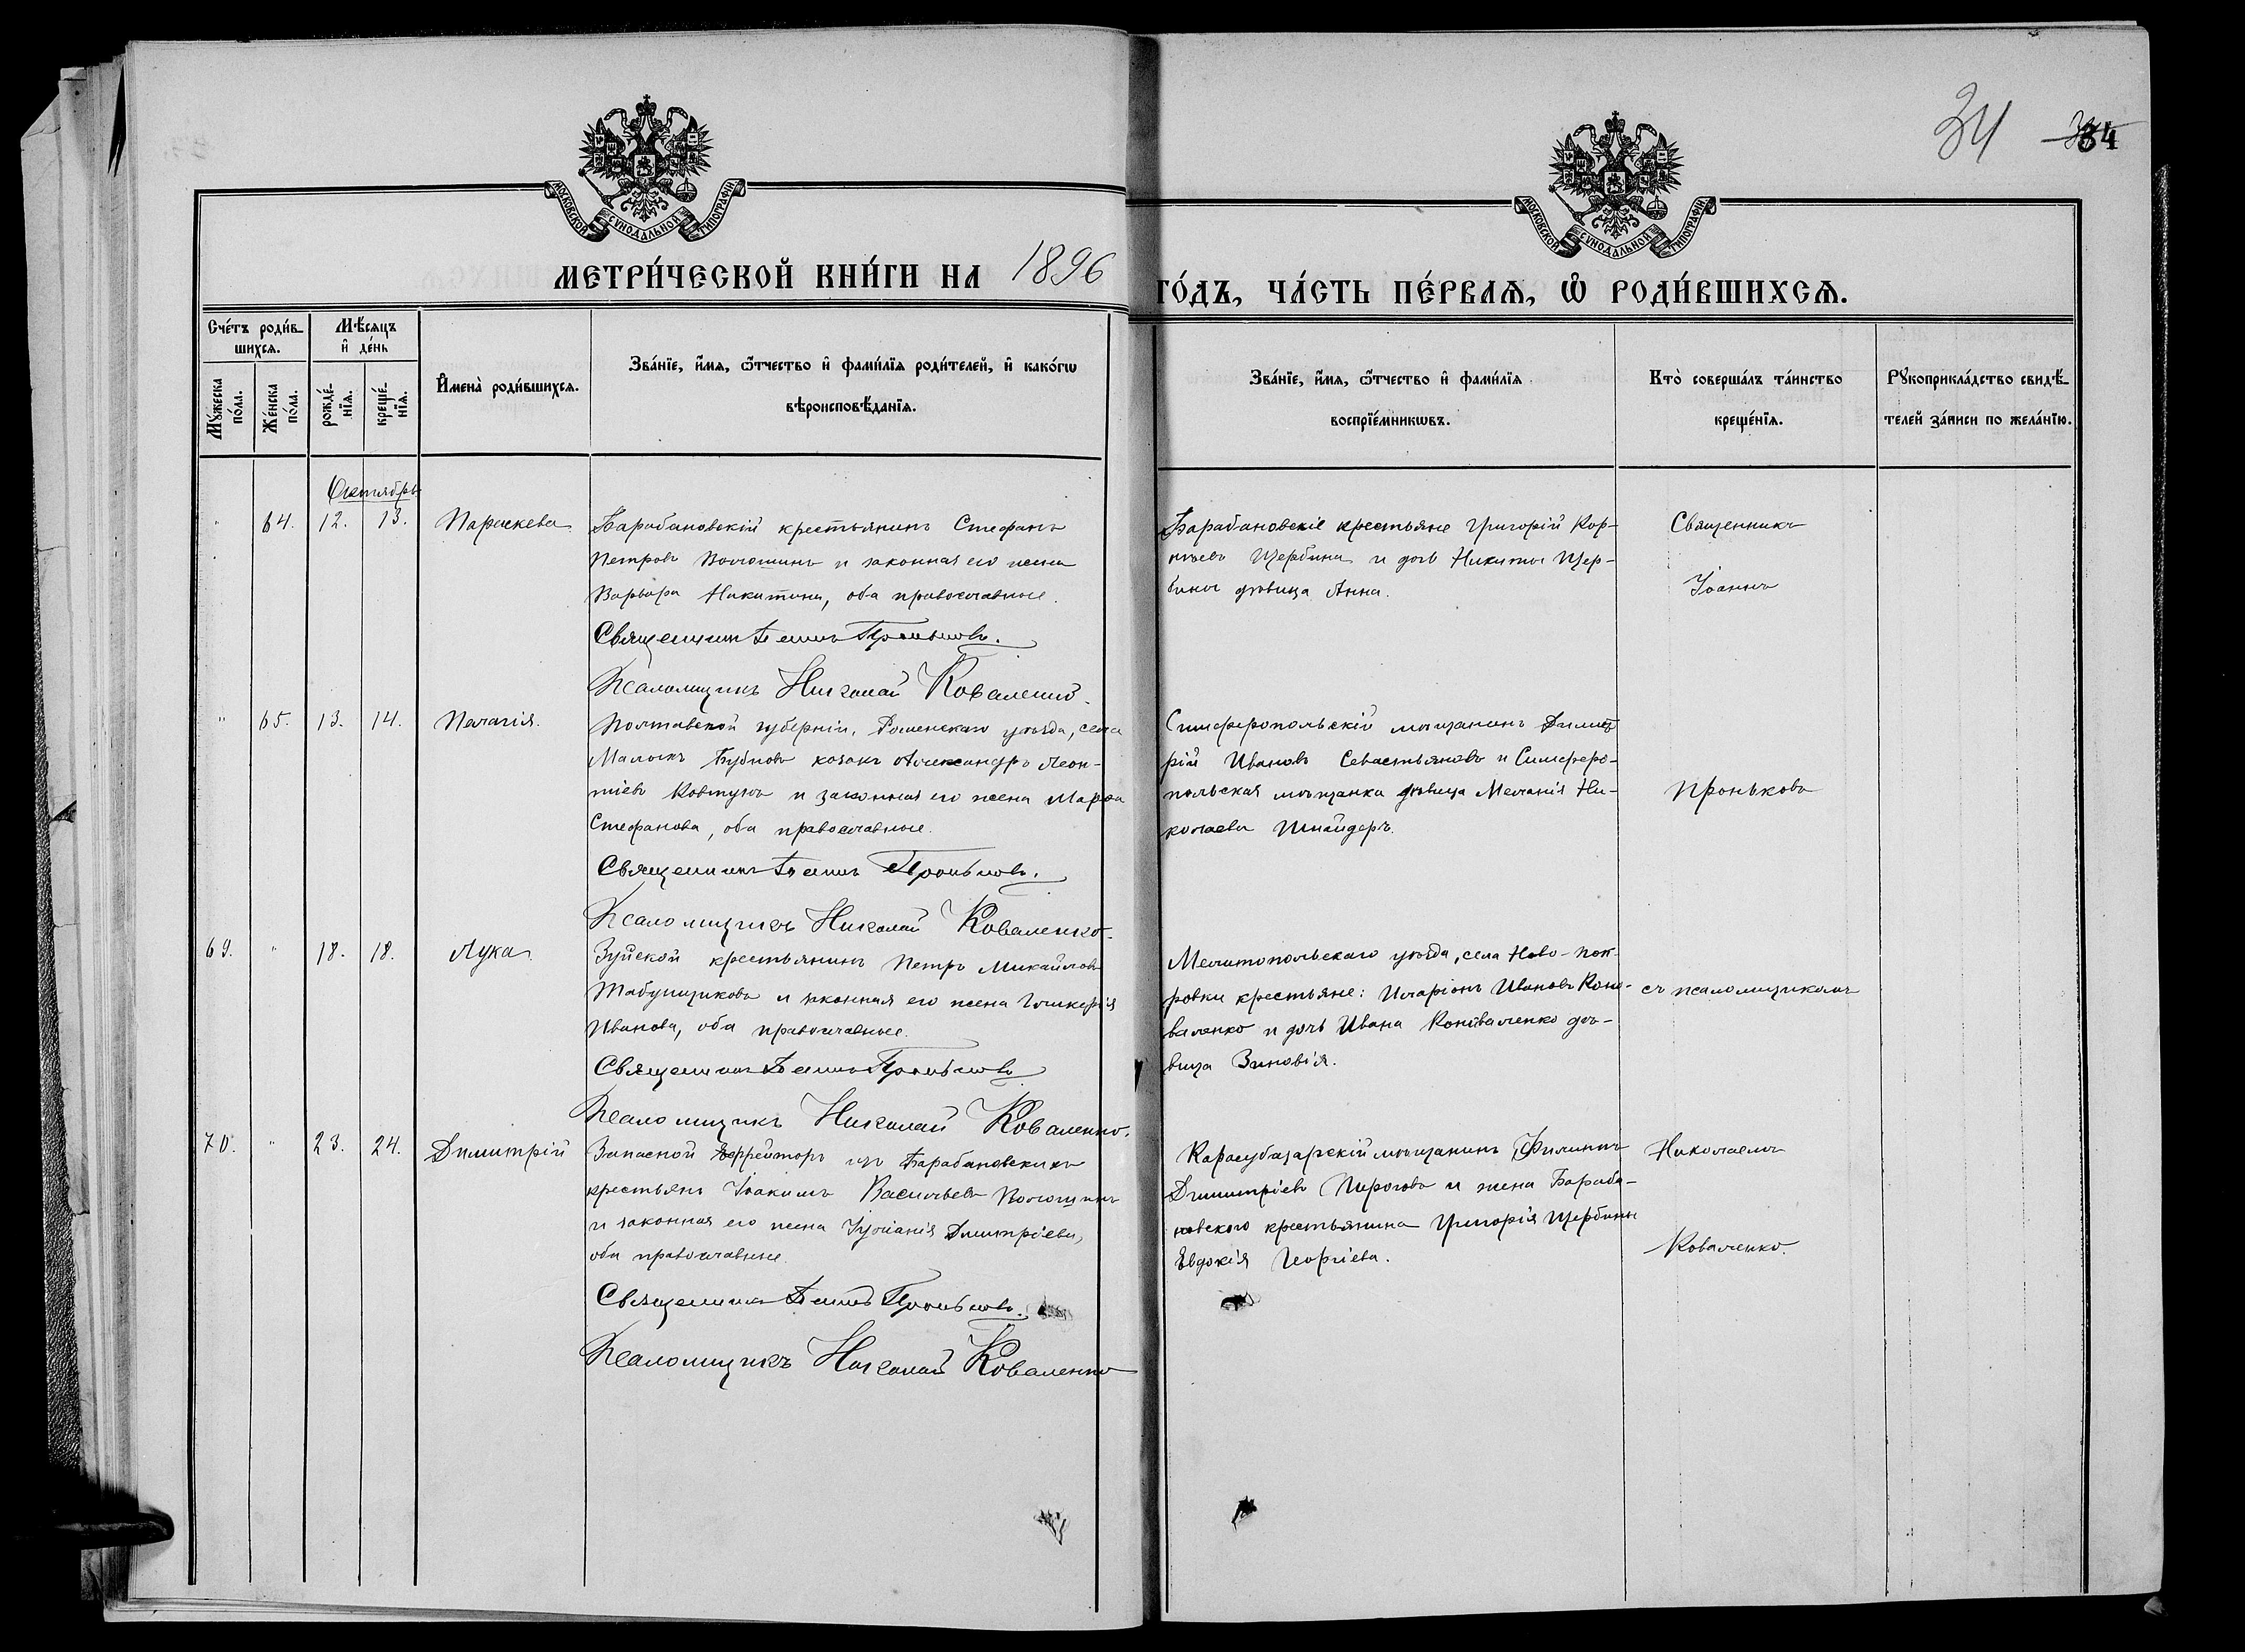 34
34
МОСКОВСКОЙ СѴНОДАЛЬНОЙ ТИПОГРАФІИ
МОСКОВСКОЙ СѴНОДАЛЬНОЙ ТИПОГРАФІИ
МЕТРИ́ЧЕСКОЙ КНИ́ГИ НА 1896
ГО́ДЪ, ЧА́СТЬ ПЕ́РВАѦ, Ѽ РОДИ́ВШИХСѦ.
Сче́тъ роди́в-
шихсѧ.
Мꙋ́жеска
по́ла.
Же́нска
по́ла.
Мѣ́сѧцъ
и҆ де́нь
рожде́-
нїѧ.
креще́-
нїѧ.
И҆мена̀ роди́вшихсѧ.
Зва́нїе, и҆́мѧ, ѻ҆́тчество и҆ фами́лїѧ роди́телей, и҆ како́гѡ
вѣроисповѣ́данїѧ.
Зва́нїе, и҆́мѧ, ѻ҆́тчество и҆ фами́лїѧ
воспрїе́мникѡвъ.
Кто̀ соверша́лъ та́инство
креще́нїѧ.
Рꙋкоприкла́дство свидѣ́-
телей за́писи по жела́нїю.
Октябрь
" 64. 12. 13. Параскева
Барабановскій крестьянинъ Стефанъ
Петровъ Волошинъ и законная его жена
Варвара Никитина, оба православные.
Священникъ Іоаннъ Проньковъ.
Псаломщикъ Николай Коваленко.
Барабановскіе крестьяне Григорій Кор-
нѣевъ Щербина и дочь Никиты Щер-
бины дѣвица Анна.
Священникъ
Іоаннъ
" 65. 13. 14. Пелагія.
Полтавской губерніи, Роменскаго уѣзда, села
Малыхъ Бубновъ козакъ Александръ Леон-
тіевъ Ковтунъ и законная его жена Марѳа
Стефанова, оба православные.
Священникъ Іоаннъ Проньковъ.
Псаломщикъ Николай Коваленко.
Симферопольскій мѣщанинъ Димит-
рій Ивановъ Севастьяновъ и Симферо-
польская мѣщанка дѣвица Меланія Ни-
колаева Шнайдеръ.
Проньковъ
69. " 18. 18. Лука.
Зуйской крестьянинъ Петръ Михайловъ
Табунщиковъ и законная его жена Гликерія
Иванова, оба православные.
Священникъ Іоаннъ Проньковъ
Псаломщикъ Николай Коваленко.
Мелитопольскаго уѣзда, села Ново-Пок-
ровки крестьяне: Иларіонъ Ивановъ Коно-
валенко и дочь Ивана Коноваленко дѣ-
вица Зиновія.
съ псаломщикомъ
70. " 23. 24. Димитрій
Запасной Ефрейторъ изъ Барабановскихъ
крестьянъ Іоакимъ Васильевъ Волошинъ
и законная его жена Іуліанія Димитріева,
оба православные.
Священникъ Іоаннъ Проньковъ.
Псаломщикъ Николай Коваленко
Карасубазарскій мѣщанинъ Филиппъ
Димитріевъ Пироговъ и жена Бараба-
новского крестьянина Григорія Щербины
Евдокія Георгіева.
Николаемъ
Коваленко.